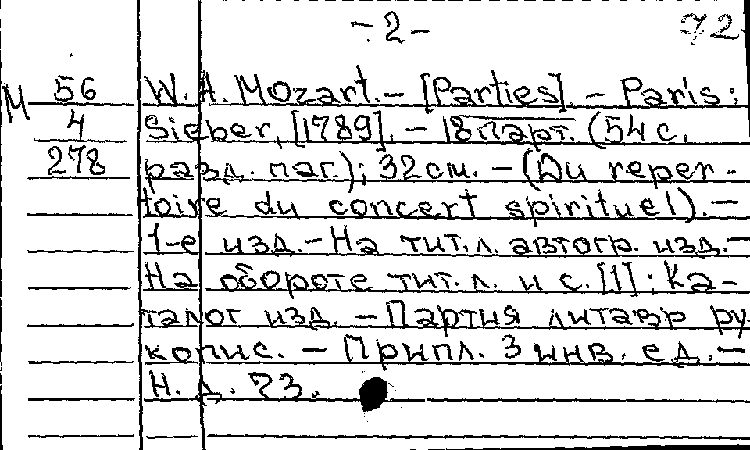 -2- 72
М 56 W. A. Mozart. – [Parties]. – Paris:
4 Sieber, [1789]. – 18 парт. (54 с.
278 разд. паг.); 32 см. – (Du reper-
toire du concert spirituel). –
1-е изд. – На тит. л. автогр. изд. –
На обороте тит. л. и с. [1]: Ка-
талог изд. – Партия литавр ру
копис. – Припл. 3 инв. ед. –
Н. д. 73.